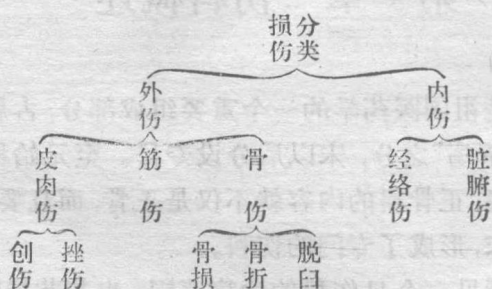 损伤
分类
外伤
内伤
皮肉伤
筋伤
骨伤
经络伤
脏腑伤
创伤
挫伤
骨损
骨折
脱臼